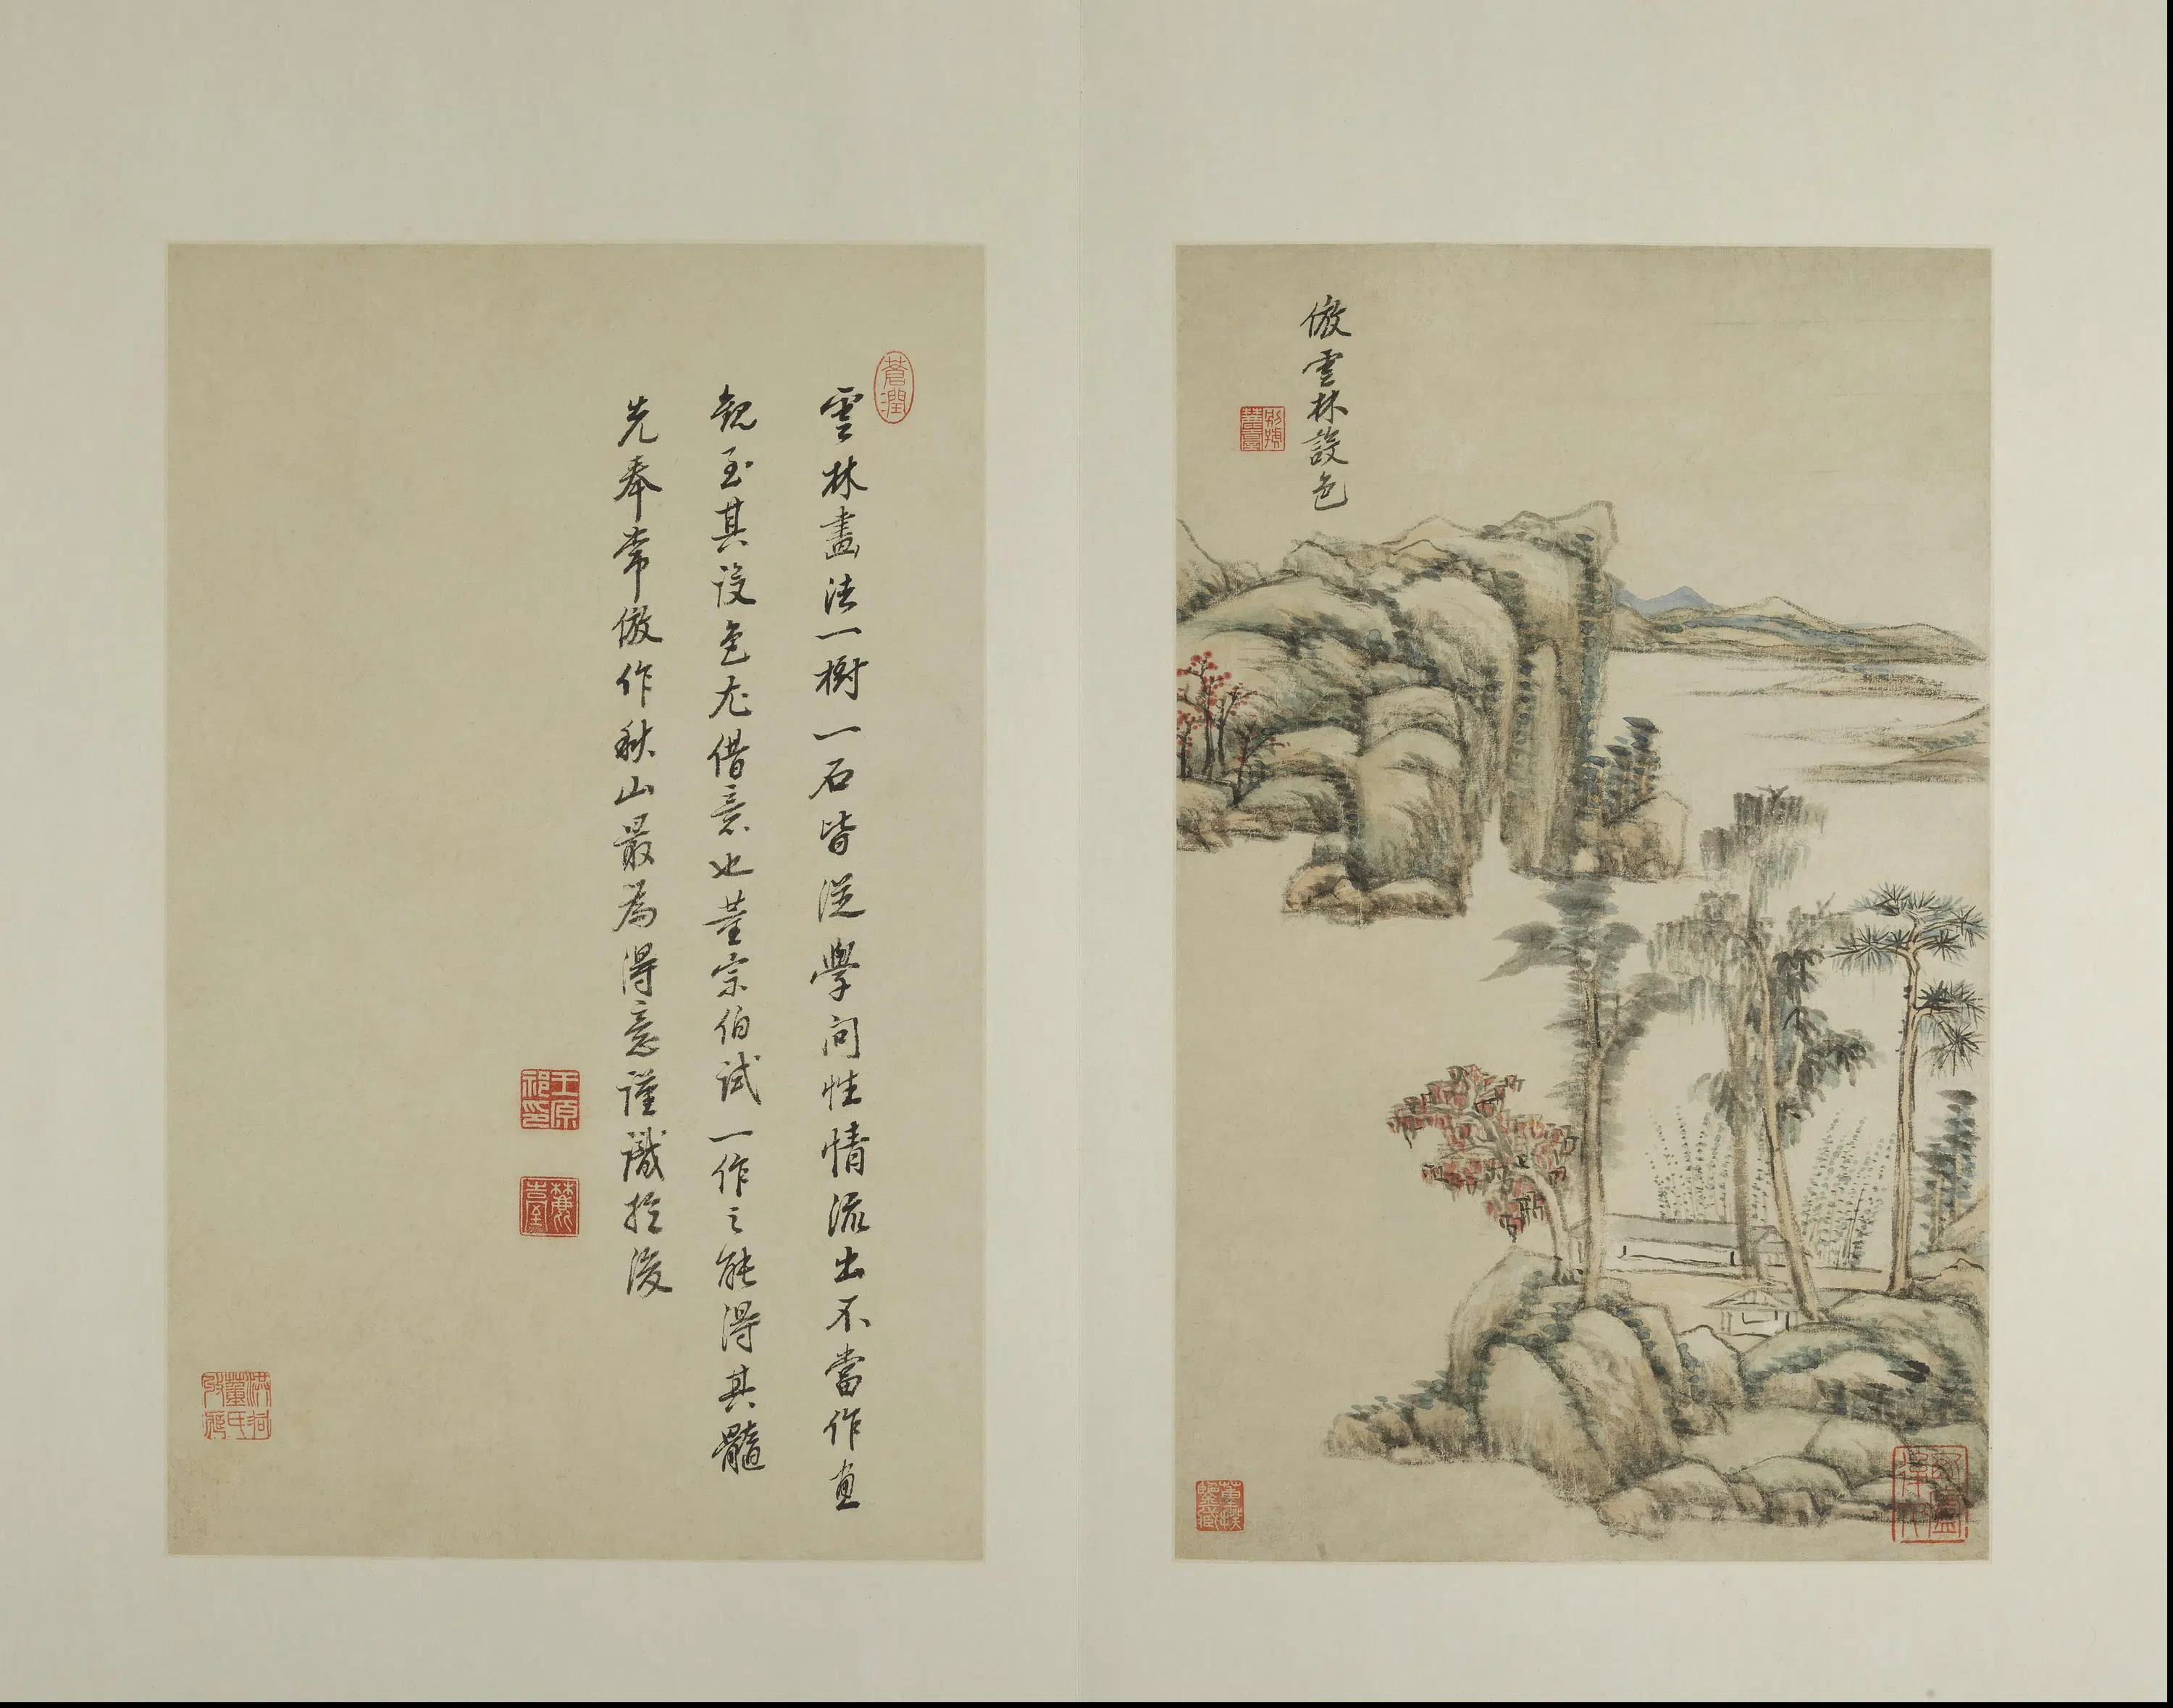 倣雲林設色
雲林畫法一樹一石皆從學問性情流出不當作畫
觀至其設色尤借意也董宗伯試一作之能得其髓
先奉常倣作秋山最為得意謹識於後
蒼潤
王原祁印
麓臺